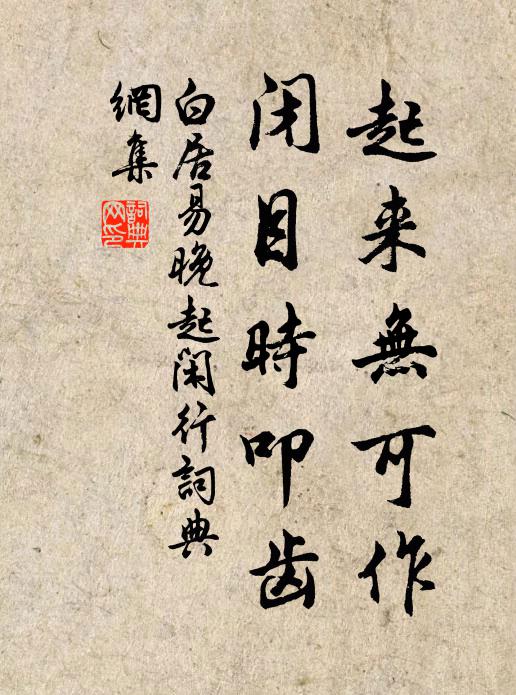 起来無可作
閉目時叩齿
白居易晚起閑行詞典
網集
詞典
网印